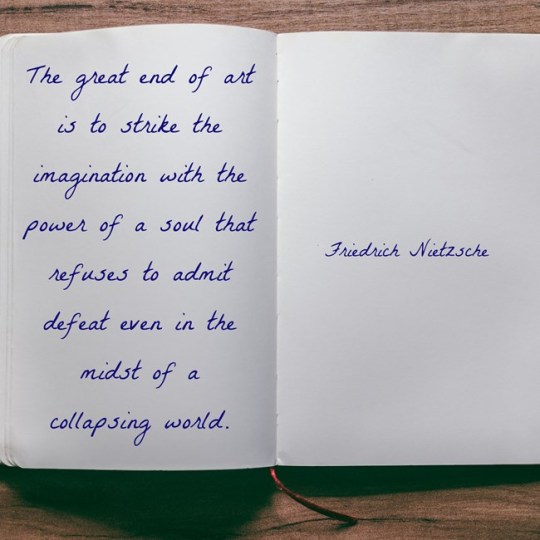 The great end of art
is to strike the
imagination with the
power of a soul that
refuses to admit
defeat even in the
midst of a
collapsing world.
Friedrich Nietzsche